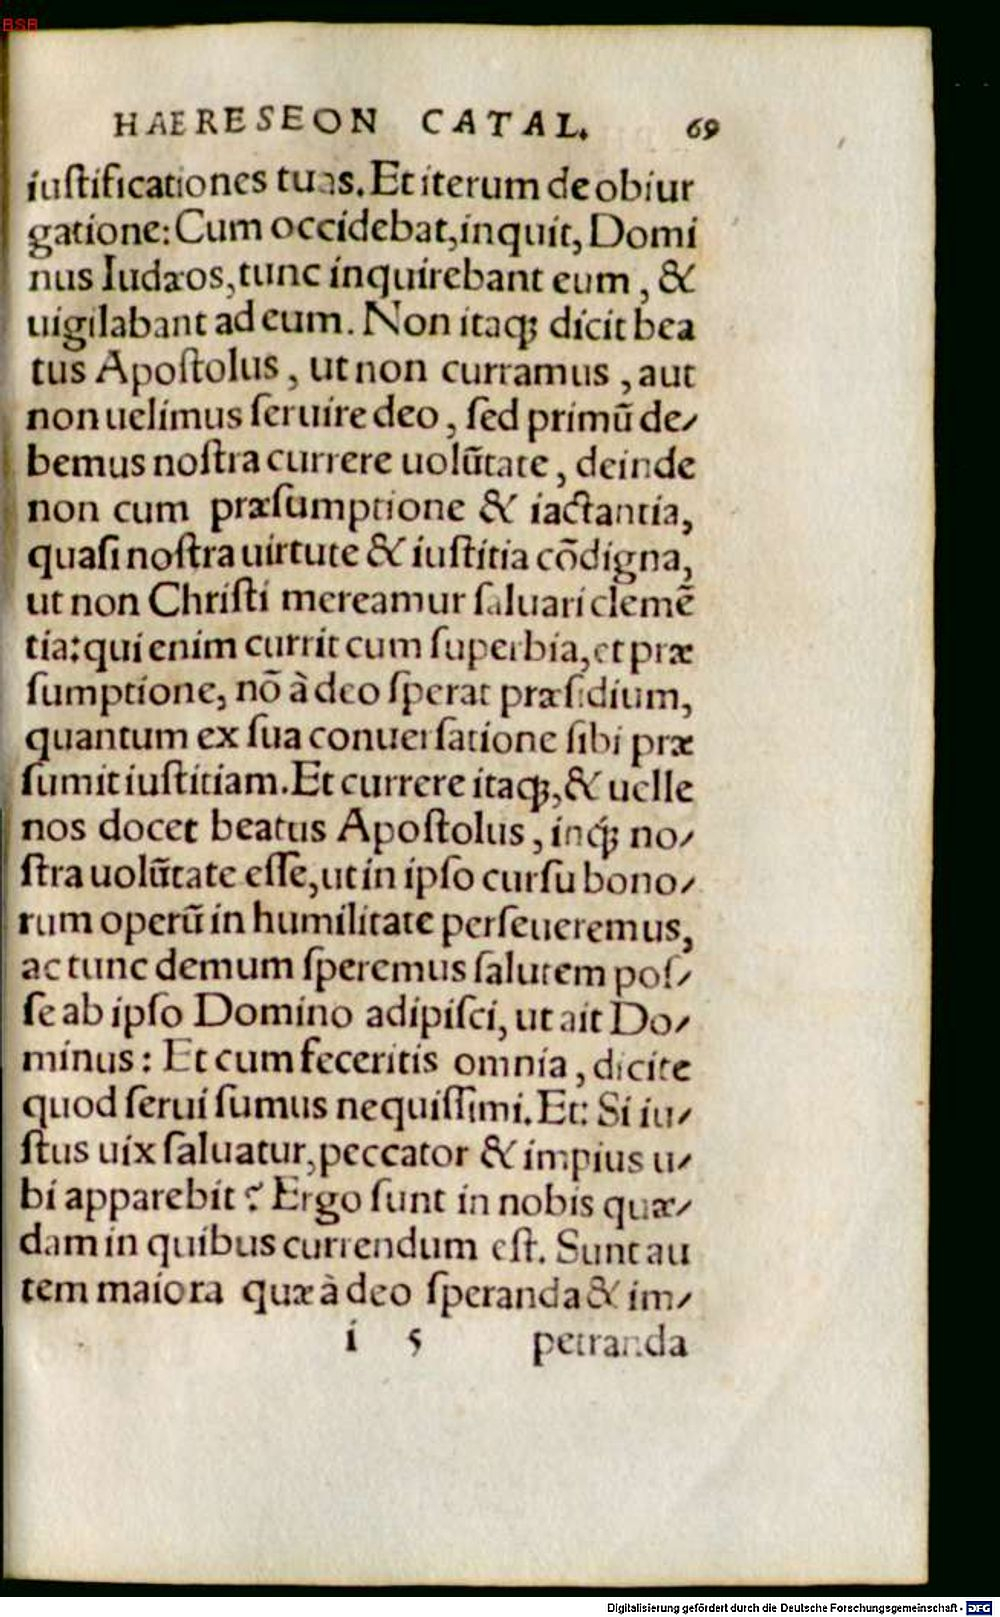 BSB
HAERESEON CATAL. 69
iuſtificationes tuas. Et iterum de obiur
gatione: Cum occidebat, inquit, Domi
nus Iudæos, tunc inquirebant eum, &
uigilabant ad eum. Non itaq; dicit bea
tus Apoſtolus, ut non curramus, aut
non uelimus ſeruire deo, ſed primū de⸗
bemus noſtra currere uolūtate, deinde
non cum præſumptione & iactantia,
quaſi noſtra uirtute & iuſtitia cōdigna,
ut non Chriſti mereamur ſaluari clemē
tia: qui enim currit cum ſuperbia, et præ
ſumptione, nō à deo ſperat præſidium,
quantum ex ſua conuerſatione ſibi præ
ſumit iuſtitiam. Et currere itaq;, & uelle
nos docet beatus Apoſtolus, inq́; no⸗
ſtra uolūtate eſſe, ut in ipſo curſu bono⸗
rum operū in humilitate perſeueremus,
ac tunc demum ſperemus ſalutem poſ⸗
ſe ab ipſo Domino adipiſci, ut ait Do⸗
minus: Et cum feceritis omnia, dicite
quod ſerui ſumus nequiſſimi. Et: Si iu⸗
ſtus uix ſaluatur, peccator & impius u⸗
bi apparebit? Ergo ſunt in nobis quæ⸗
dam in quibus currendum eſt. Sunt au
tem maiora quæ à deo ſperanda & im⸗
i 5 petranda
Digitalisierung gefördert durch die Deutsche Forschungsgemeinschaft - DFG